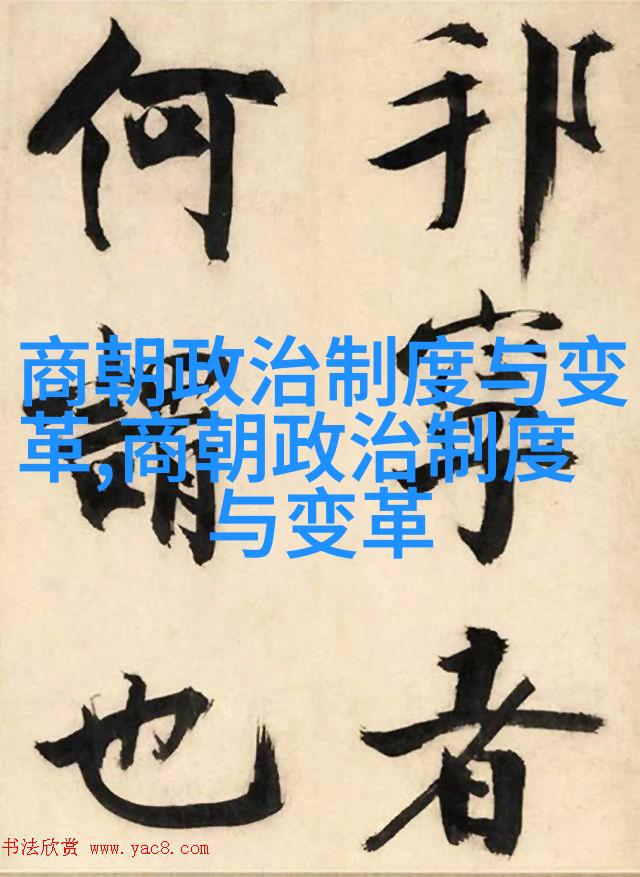 邦寧者
何謂也
商朝政治制度与变
革,商朝政治制度
与变革
书法欣赏 www.yac8.com